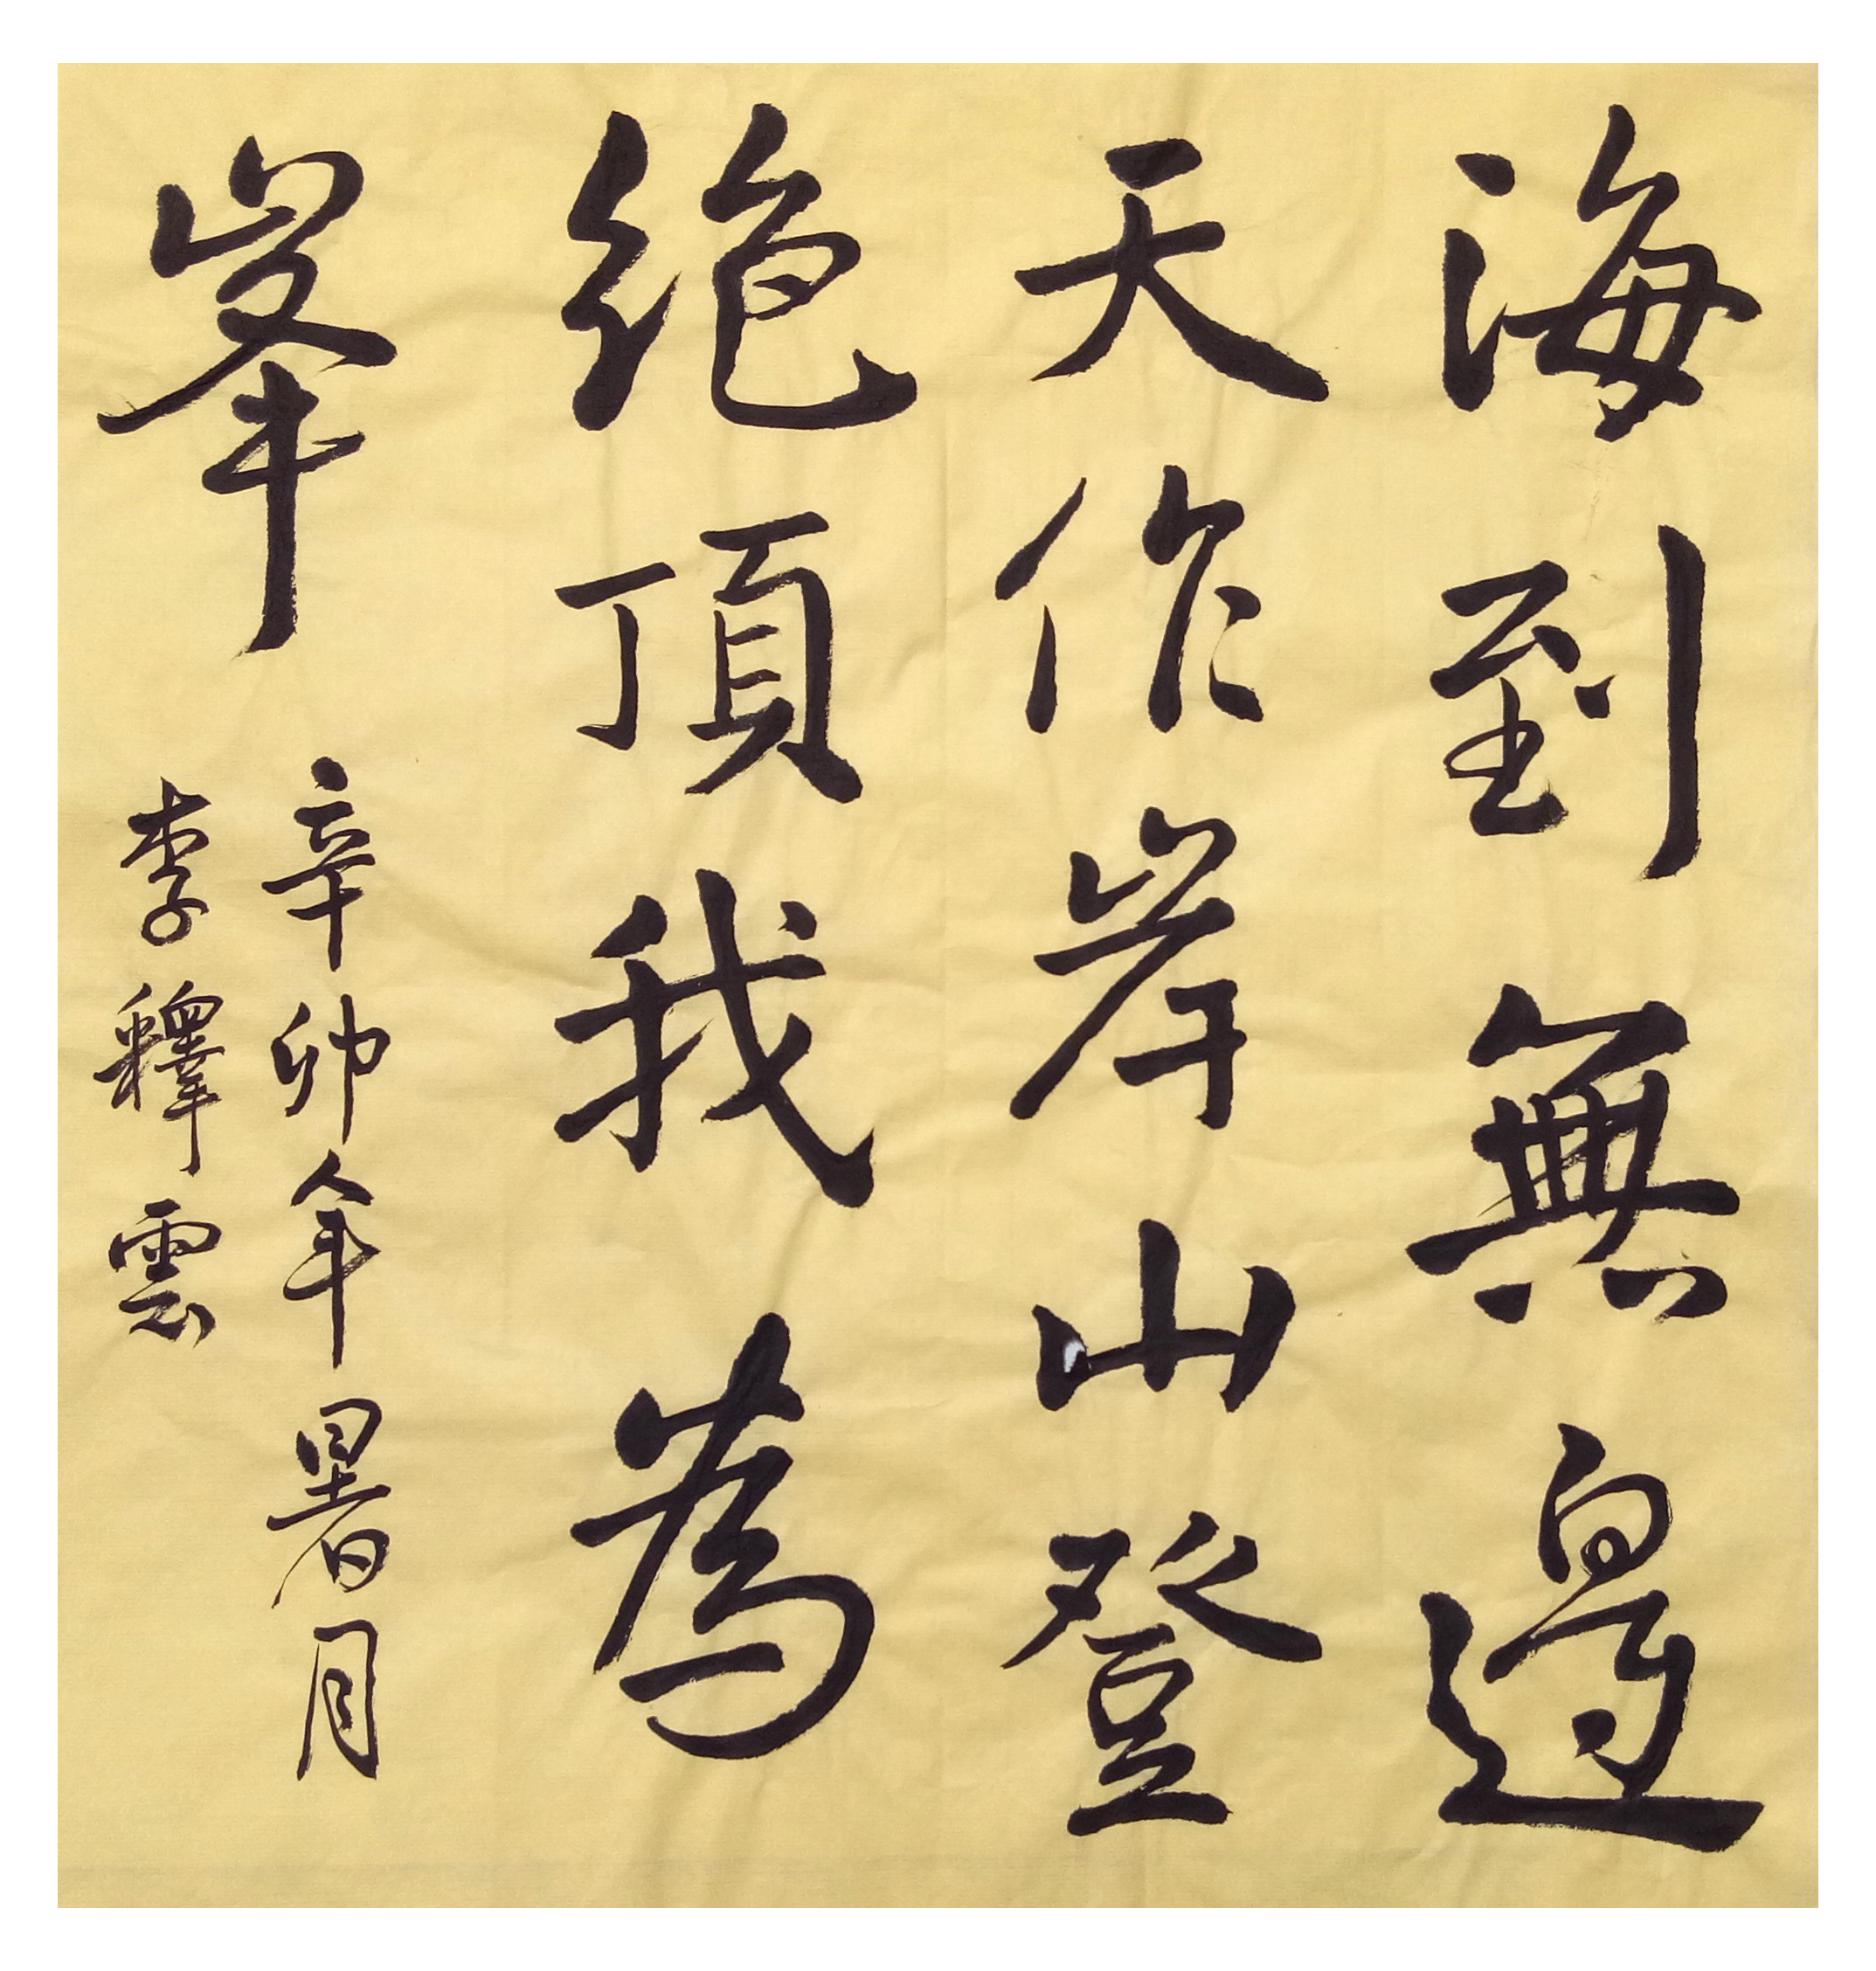 海到無邊
天作岸山登
絶頂我為
峯
辛卯年暑月
李釋雲